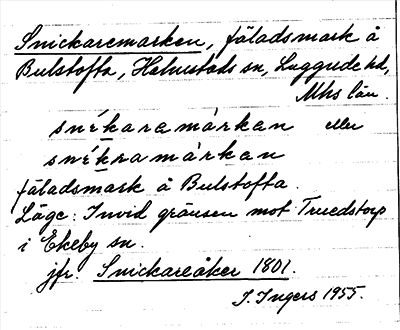 Snickaremarken, fäladsmark å
Bulstofta, Halmstads sn, Luggude hd,
Mhs län.
snékaramàrkan eller
snékramàrkan
fäladsmark å Bulstofta.
Läge: Invid gränsen mot Truedstorp
i Ekeby sn.
jfr. Snickareåker 1801.
I. Ingers 1955.